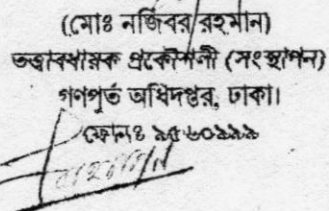 (মোঃ নজিবর রহমান)
তত্ত্বাবধায়ক প্রকৌশলী (সংস্থাপন)
গণপূর্ত অধিদপ্তর, ঢাকা।
ফোনঃ ৯৫৬০৯৯৯